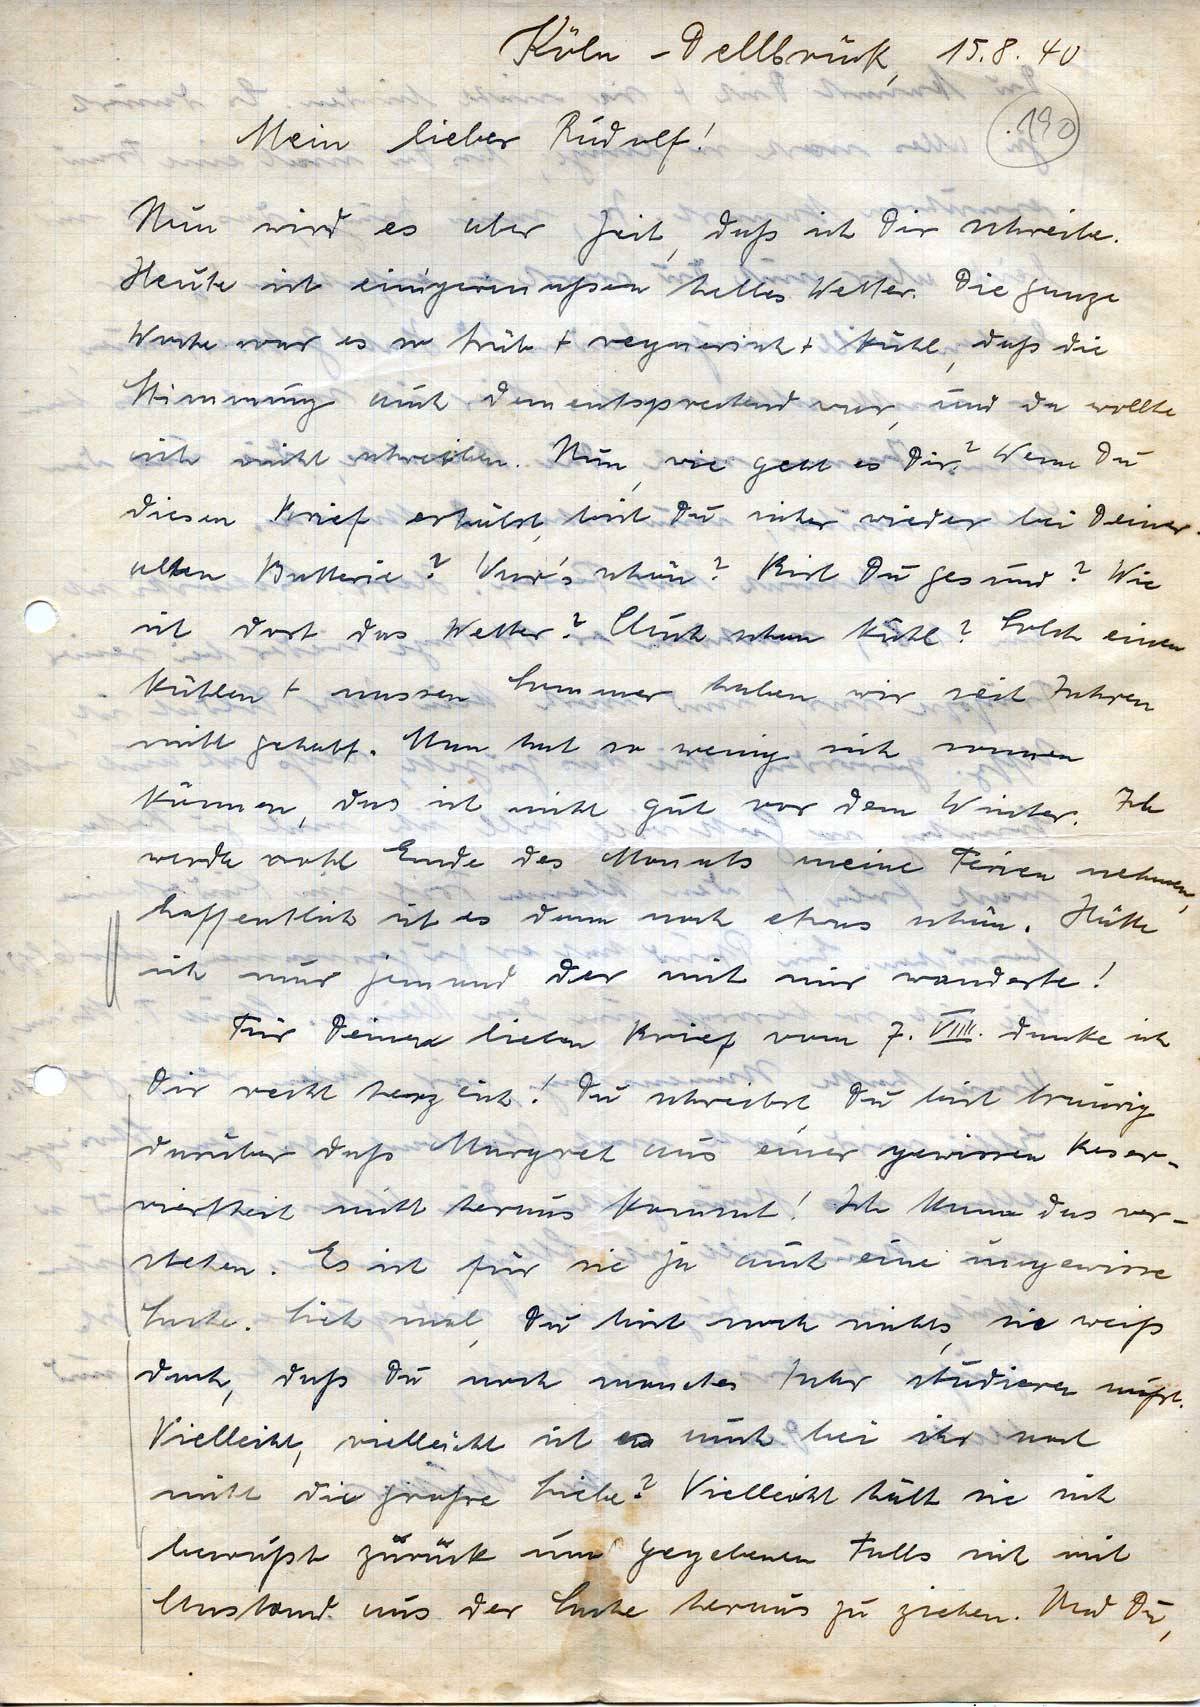 Köln - Dellbrück, 15.8.40
190
Mein lieber Rudolf!
Nun wird es aber Zeit, daß ich Dir schreibe.
Heute ist einigermaßen helles Wetter. Die ganze
Woche war es so trüb + regnerisch + kühl, daß die
Stimmung auch dementsprechend war, und da wollte
ich nicht schreiben. Nun, wie geht es Dir? Wenn Du
diesen Brief erhälst, bist Du sicher wieder bei Deiner
alten Batterie? War's schön? Bist Du gesund? Wie
ist dort das Wetter? Auch schon kühl? Solch einen
kühlen + nassen Sommer haben wir seit Jahren
nicht gehabt. Man hat so wenig sich sonnen
können, das ist nicht gut vor dem Winter. Ich
werde wohl Ende des Monats meine Ferien nehmen,
hoffentlich ist es dann noch etwas schön. Hätte
ich nur jemand der mit mir wanderte!
Für Deinen lieben Brief vom 7. VIII. danke ich
Dir recht herzlich! Du schreibst, Du bist traurig
darüber daß Margret aus einer gewissen Reser-
viertheit nicht heraus kommt! Ich kann das ver-
stehen. Es ist für sie ja auch eine ungewisse
Sache. Sieh mal, Du bist noch nichts, sie weiß
doch, daß Du noch manches Jahr studieren mußt.
Vielleicht, vielleicht ist es auch bei ihr noch
nicht die große Liebe? Vielleicht hält sie sich
bewußt zurück um gegebenen Falls sich mit
Anstand aus der Sache heraus zu ziehen. Und Du,